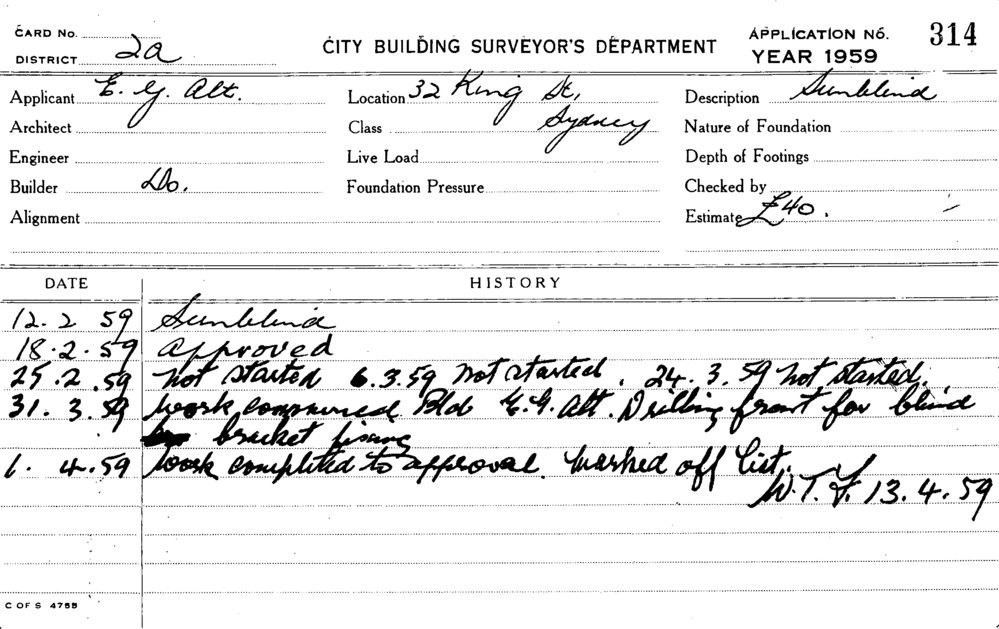 CARD No.
DISTRICT 2a
CITY BUILDING SURVEYOR'S DEPARTMENT
APPLICATION No. 314
YEAR 1959
Applicant E. G. Alt. Location 32 King St, Description Sunblind
Architect Class Sydney Nature of Foundation
Engineer Live Load Depth of Footings
Builder Do. Foundation Pressure Checked by
Alignment Estimate £40.
DATE HISTORY
12. 2 59 Sunblind
18. 2. 59 approved
25. 2. 59 not started 6. 3. 59 not started. 24. 3. 59 not started.
31. 3. 59 work commenced Bld E. G. Alt. Drilling front for blind
bracket fixing
1. 4. 59 Work completed to approval. Marked off list.
W. T. F. 13. 4. 59
C OF S 4755